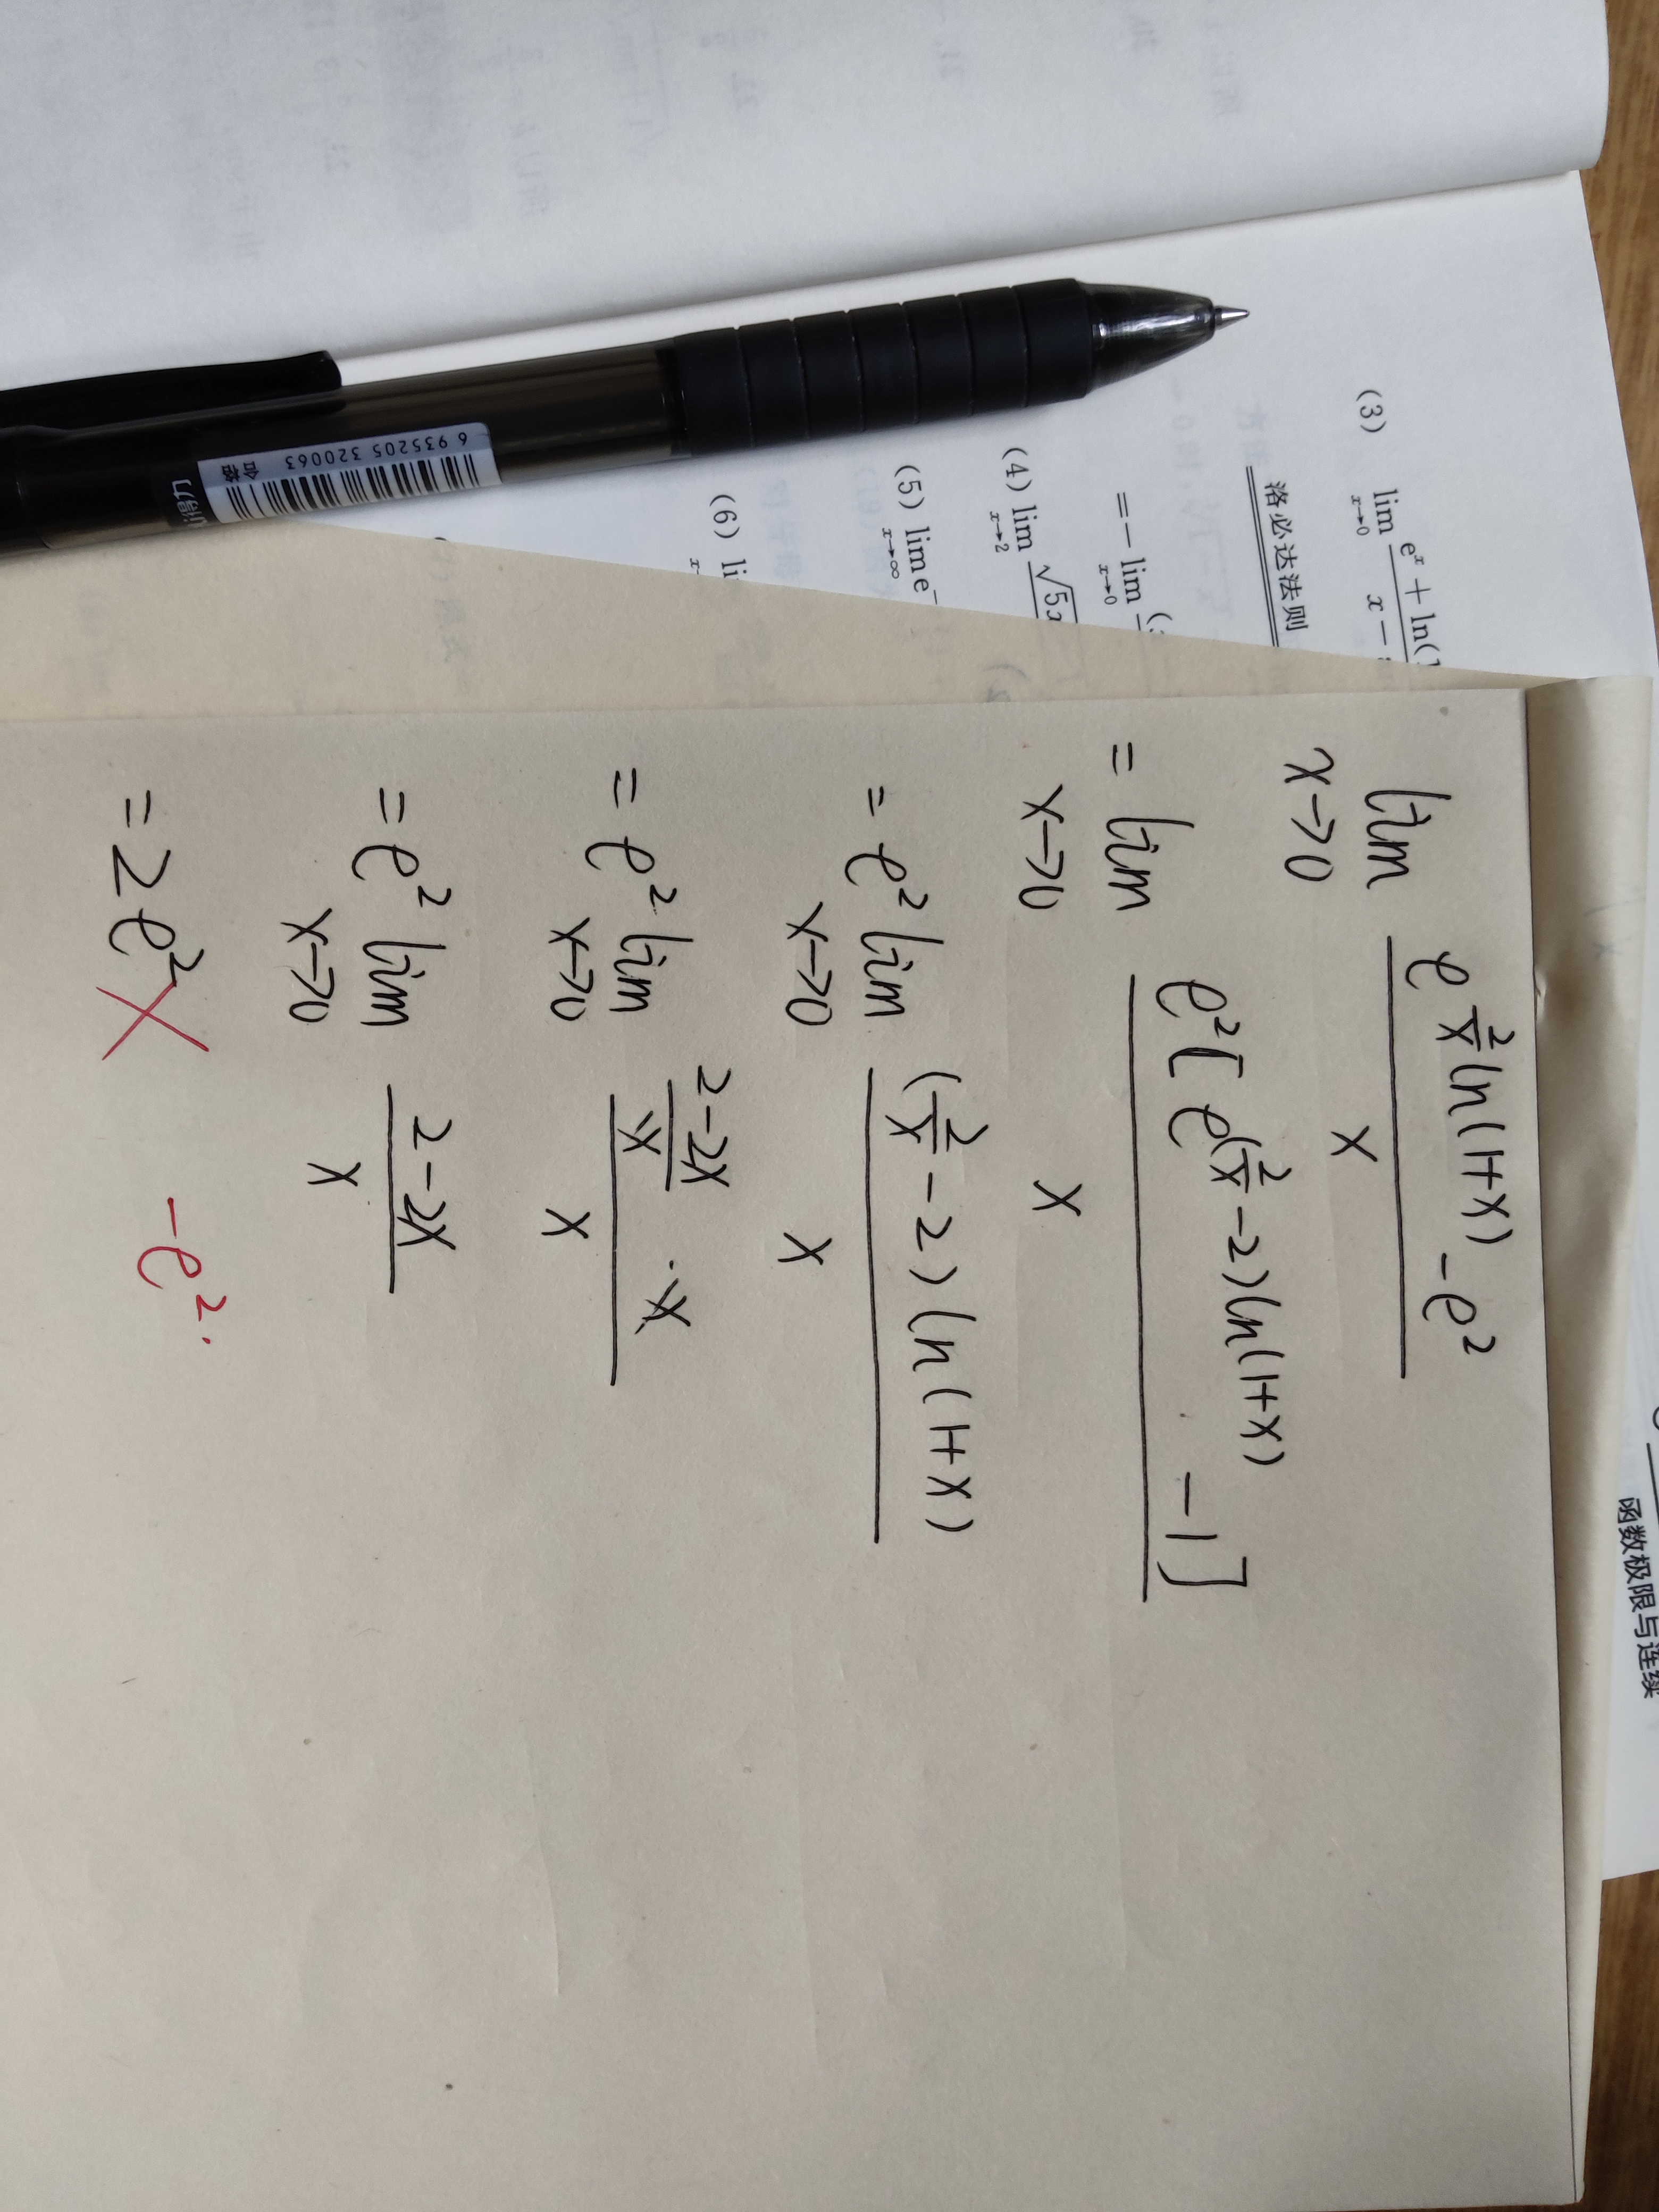 函数极限与连续
(3) lim x→0 e^x + ln(1 x −
洛必达法则
= − lim x→0
(4) lim x→2 √5x
(5) lim x→∞ e^−
(6) li
6 935205 320063
合格
得力
lim x→0 (e^((2/x)ln(1+x)) − e^2)/x
= lim x→0 (e^2[e^((2/x − 2)ln(1+x)) − 1])/x
= e^2 lim x→0 ((2/x − 2)ln(1+x))/x
= e^2 lim x→0 ((2−2x)/x · x)/x
= e^2 lim x→0 (2−2x)/x
= 2e^2 × −e^2.